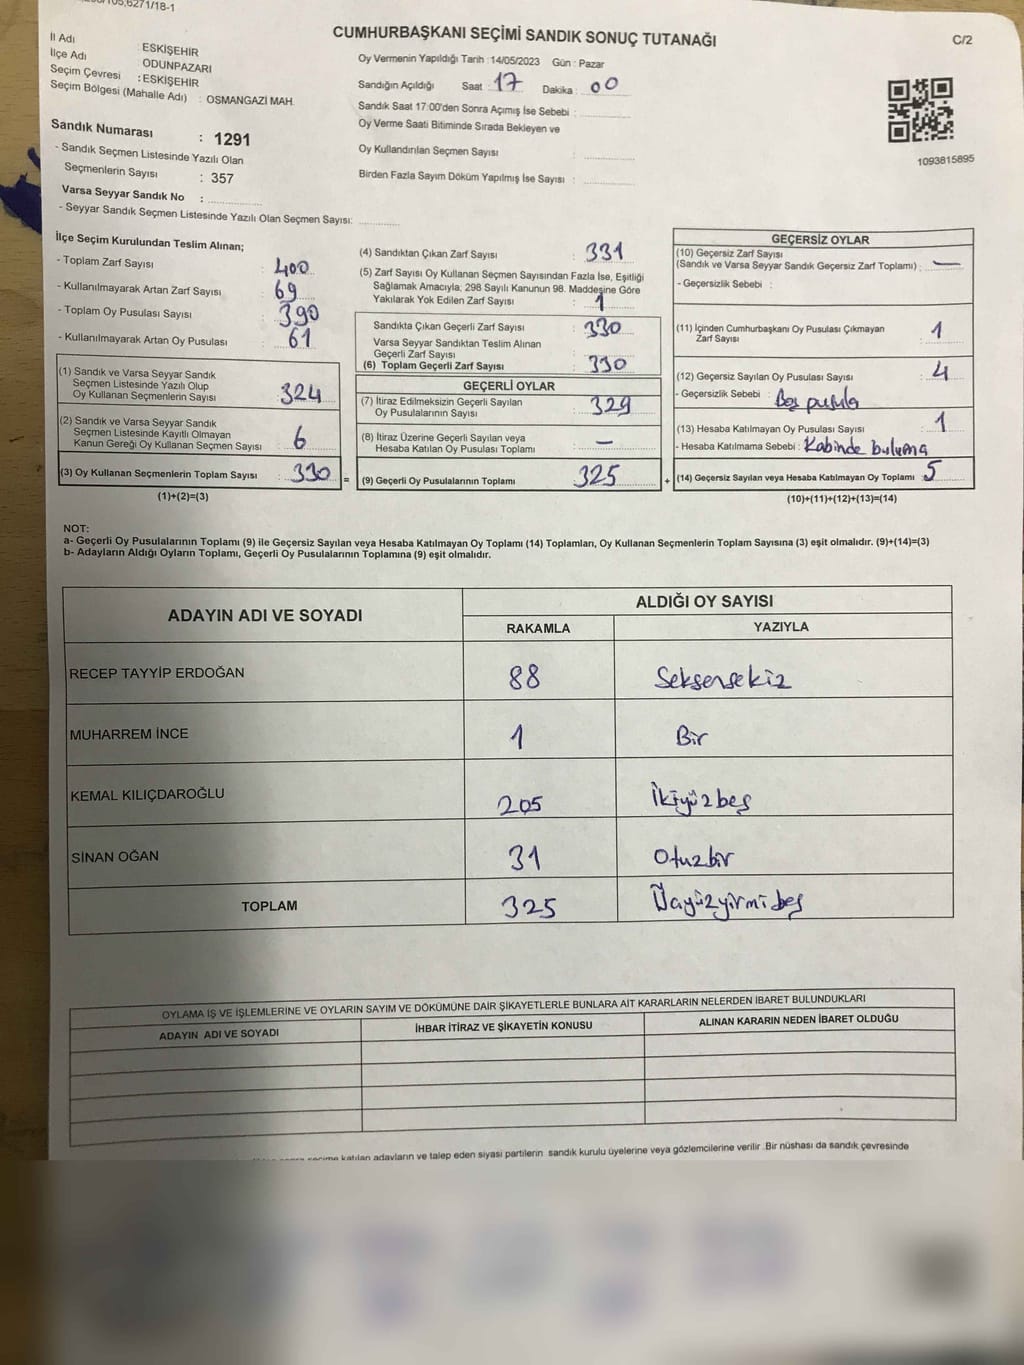 CUMHURBAŞKANI SEÇİMİ SANDIK SONUÇ TUTANAĞI
C/2
İl Adı : ESKİŞEHİR
İlçe Adı : ODUNPAZARI
Seçim Çevresi : ESKİŞEHİR
Seçim Bölgesi (Mahalle Adı) : OSMANGAZİ MAH.
Sandık Numarası : 1291
- Sandık Seçmen Listesinde Yazılı Olan
Seçmenlerin Sayısı : 357
Varsa Seyyar Sandık No :
- Seyyar Sandık Seçmen Listesinde Yazılı Olan Seçmen Sayısı:
Oy Vermenin Yapıldığı Tarih : 14/05/2023 Gün : Pazar
Sandığın Açıldığı Saat : 17 Dakika : 00
Sandık Saat 17:00'den Sonra Açımış İse Sebebi :
Oy Verme Saati Bitiminde Sırada Bekleyen ve
Oy Kullandırılan Seçmen Sayısı :
Birden Fazla Sayım Döküm Yapılmış İse Sayısı :
1093815895
İlçe Seçim Kurulundan Teslim Alınan;
- Toplam Zarf Sayısı : 400
- Kullanılmayarak Artan Zarf Sayısı : 69
- Toplam Oy Pusulası Sayısı : 390
- Kullanılmayarak Artan Oy Pusulası : 61
(1) Sandık ve Varsa Seyyar Sandık
Seçmen Listesinde Yazılı Olup
Oy Kullanan Seçmenlerin Sayısı : 324
(2) Sandık ve Varsa Seyyar Sandık
Seçmen Listesinde Kayıtlı Olmayan
Kanun Gereği Oy Kullanan Seçmen Sayısı : 6
(3) Oy Kullanan Seçmenlerin Toplam Sayısı : 330 =
(1)+(2)=(3)
(4) Sandıktan Çıkan Zarf Sayısı : 331
(5) Zarf Sayısı Oy Kullanan Seçmen Sayısından Fazla İse, Eşitliği
Sağlamak Amacıyla; 298 Sayılı Kanunun 98. Maddesine Göre
Yakılarak Yok Edilen Zarf Sayısı : 1
Sandıkta Çıkan Geçerli Zarf Sayısı : 330
Varsa Seyyar Sandıktan Teslim Alınan
Geçerli Zarf Sayısı :
(6) Toplam Geçerli Zarf Sayısı : 330
GEÇERLİ OYLAR
(7) İtiraz Edilmeksizin Geçerli Sayılan
Oy Pusulalarının Sayısı : 329
(8) İtiraz Üzerine Geçerli Sayılan veya
Hesaba Katılan Oy Pusulası Toplamı : —
(9) Geçerli Oy Pusulalarının Toplamı : 325 +
GEÇERSİZ OYLAR
(10) Geçersiz Zarf Sayısı
(Sandık ve Varsa Seyyar Sandık Geçersiz Zarf Toplamı) : —
- Geçersizlik Sebebi :
(11) İçinden Cumhurbaşkanı Oy Pusulası Çıkmayan
Zarf Sayısı : 1
(12) Geçersiz Sayılan Oy Pusulası Sayısı : 4
- Geçersizlik Sebebi : Boş pusula
(13) Hesaba Katılmayan Oy Pusulası Sayısı : 1
- Hesaba Katılmama Sebebi : Kabinde buluma
(14) Geçersiz Sayılan veya Hesaba Katılmayan Oy Toplamı : 5
(10)+(11)+(12)+(13)=(14)
NOT:
a- Geçerli Oy Pusulalarının Toplamı (9) ile Geçersiz Sayılan veya Hesaba Katılmayan Oy Toplamı (14) Toplamları, Oy Kullanan Seçmenlerin Toplam Sayısına (3) eşit olmalıdır. (9)+(14)=(3)
b- Adayların Aldığı Oyların Toplamı, Geçerli Oy Pusulalarının Toplamına (9) eşit olmalıdır.
ADAYIN ADI VE SOYADI ALDIĞI OY SAYISI
RAKAMLA YAZIYLA
RECEP TAYYİP ERDOĞAN 88 Seksensekiz
MUHARREM İNCE 1 Bir
KEMAL KILIÇDAROĞLU 205 İkiyüzbeş
SİNAN OĞAN 31 Otuzbir
TOPLAM 325 Üçyüzyirmibeş
OYLAMA İŞ VE İŞLEMLERİNE VE OYLARIN SAYIM VE DÖKÜMÜNE DAİR ŞİKAYETLERLE BUNLARA AİT KARARLARIN NELERDEN İBARET BULUNDUKLARI
ADAYIN ADI VE SOYADI İHBAR İTİRAZ VE ŞİKAYETİN KONUSU ALINAN KARARIN NEDEN İBARET OLDUĞU
katılan adayların ve talep eden siyasi partilerin sandık kurulu üyelerine veya gözlemcilerine verilir .Bir nüshası da sandık çevresinde